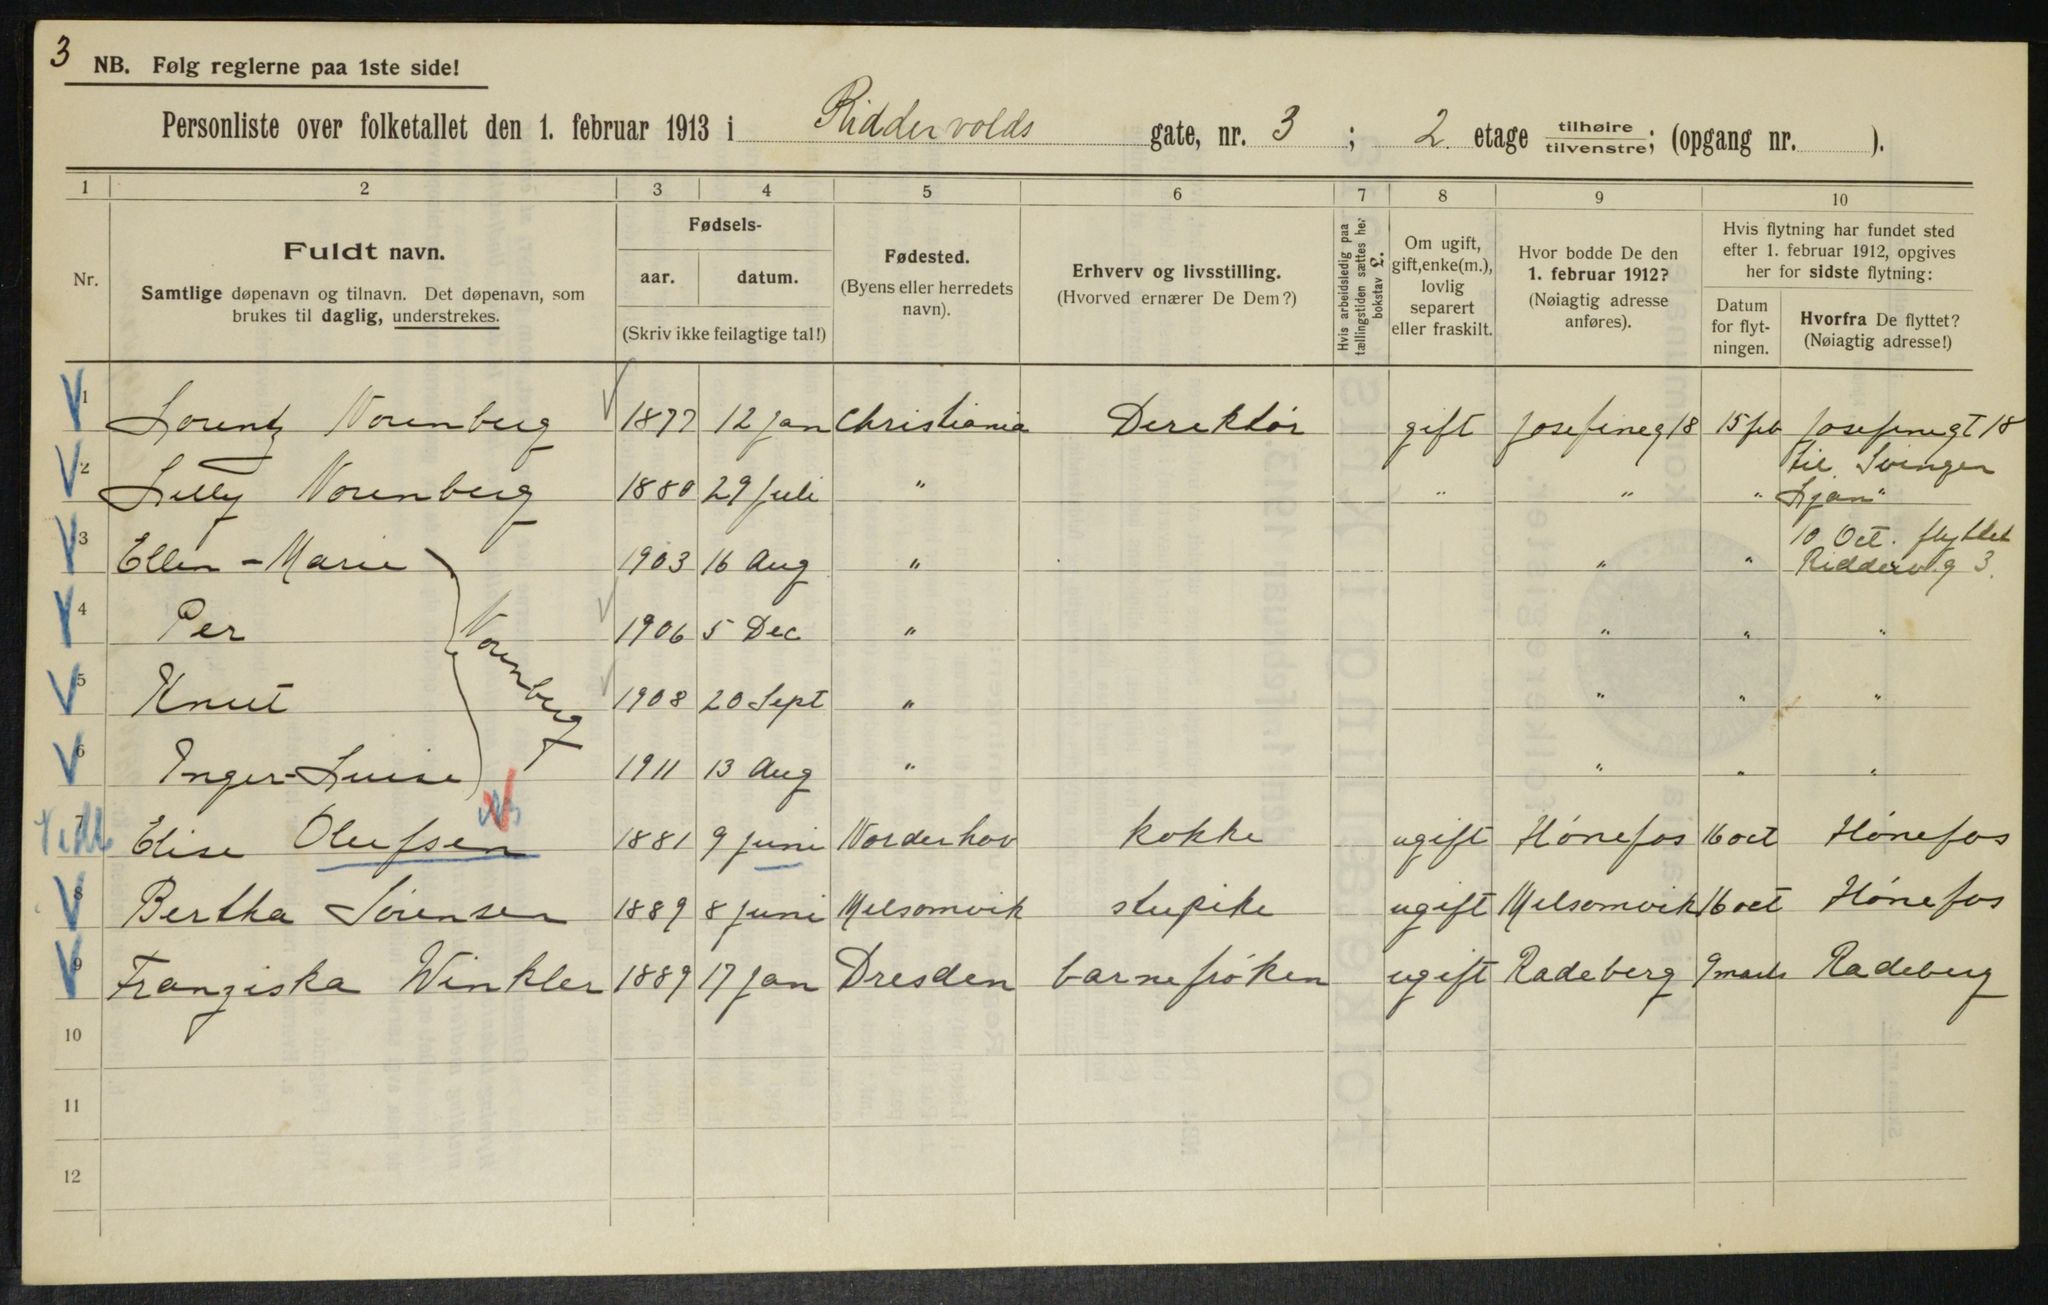 3
NB. Følg reglerne paa 1ste side!
Personliste over folketallet den 1. februar 1913 i Riddervolds gate, nr. 3 ; 2 etage tilhøire tilvenstre; (opgang nr. ).
1 2 3 4 5 6 7 8 9 10
Nr.
Fuldt navn.
Samtlige døpenavn og tilnavn. Det døpenavn, som
brukes til daglig, understrekes.
Fødsels-
aar. datum.
(Skriv ikke feilagtige tal!)
Fødested.
(Byens eller herredets
navn).
Erhverv og livsstilling.
(Hvorved ernærer De Dem?)
Hvis arbeidsledig paa
tællingstiden sættes her
bokstav L.
Om ugift,
gift, enke(m.),
lovlig
separert
eller fraskilt.
Hvor bodde De den
1. februar 1912?
(Nøiagtig adresse
anføres).
Hvis flytning har fundet sted
efter 1. februar 1912, opgives
her for sidste flytning:
Datum
for flyt-
ningen.
Hvorfra De flyttet?
(Nøiagtig adresse!)
1 Lorentz Norenberg 1877 12 Jan Christiania Derektør gift Josefineg 18 15 feb Josefinegt 18
til Svinger
2 Lilly Norenberg 1880 29 Juli " " " " Ljan"
10 Oct. flyttet
3 Ellen-Marie 1903 16 Aug " " " Ridderv.g 3.
4 Per Norenberg 1906 5 Dec " " " "
5 Knut 1908 20 Sept " " " "
6 Inger-Luise 1911 13 Aug " " " "
7 Elise Olufsen 1881 9 Juni Norderhov kokke ugift Hønefos 16 oct Hønefos
8 Bertha Sørensen 1889 8 Juni Melsomvik stupike ugift Melsomvik 16 oct Hønefos
9 Franziska Winkler 1889 17 Jan Dresden barnefrøken ugift Radeberg 9 marts Radeberg
10
11
12